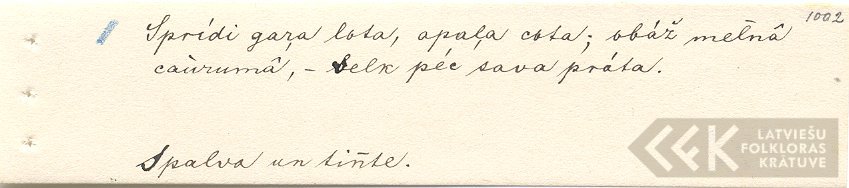 1002
Sprídi gaŗa lota, apaļa cota; obâž mel̃nâ
caùrumâ, – velk péc sava práta.
Spalva un tiñte.
LATVIEŠU
FOLKLORAS
KRĀTUVE